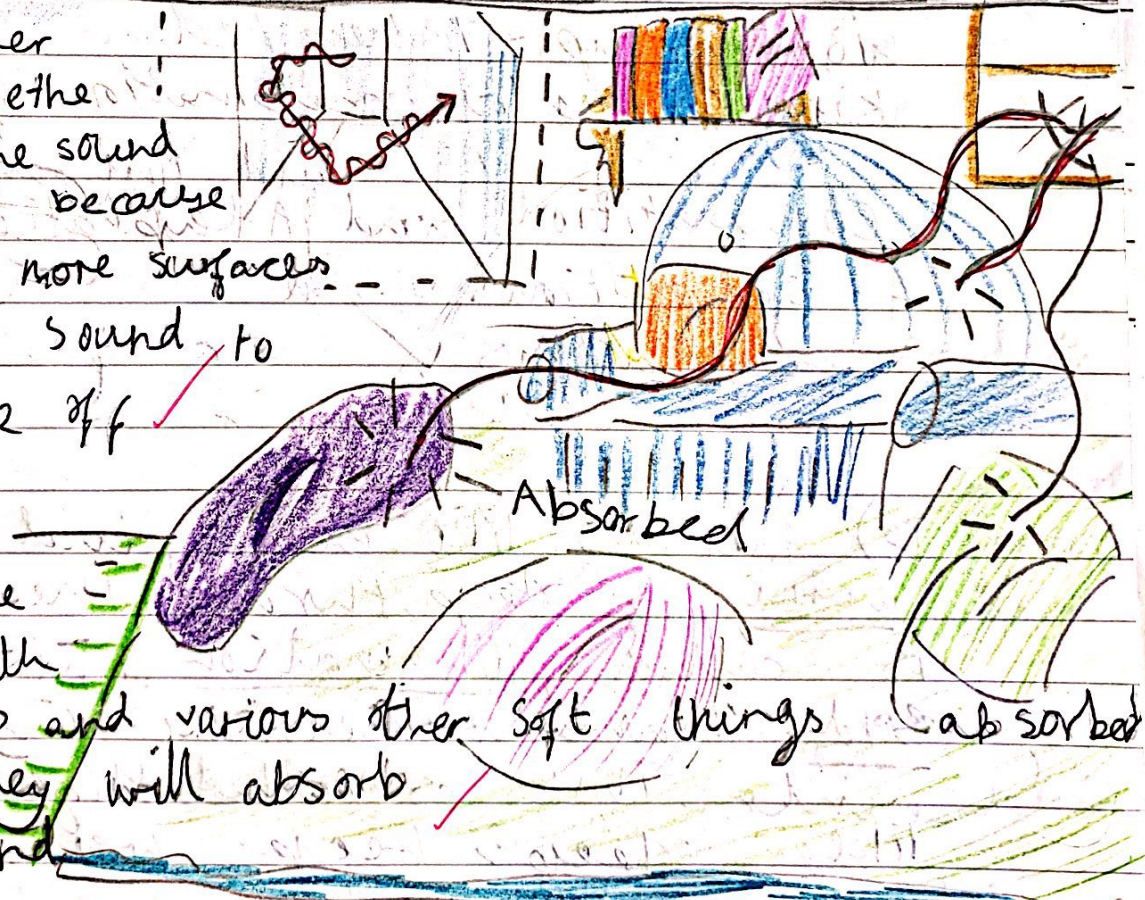 er
ethe
ne sound
because
more surfaces
sound to
off
Absorbed
e
th
and various other soft things
absorbed
ey will absorb
nd.